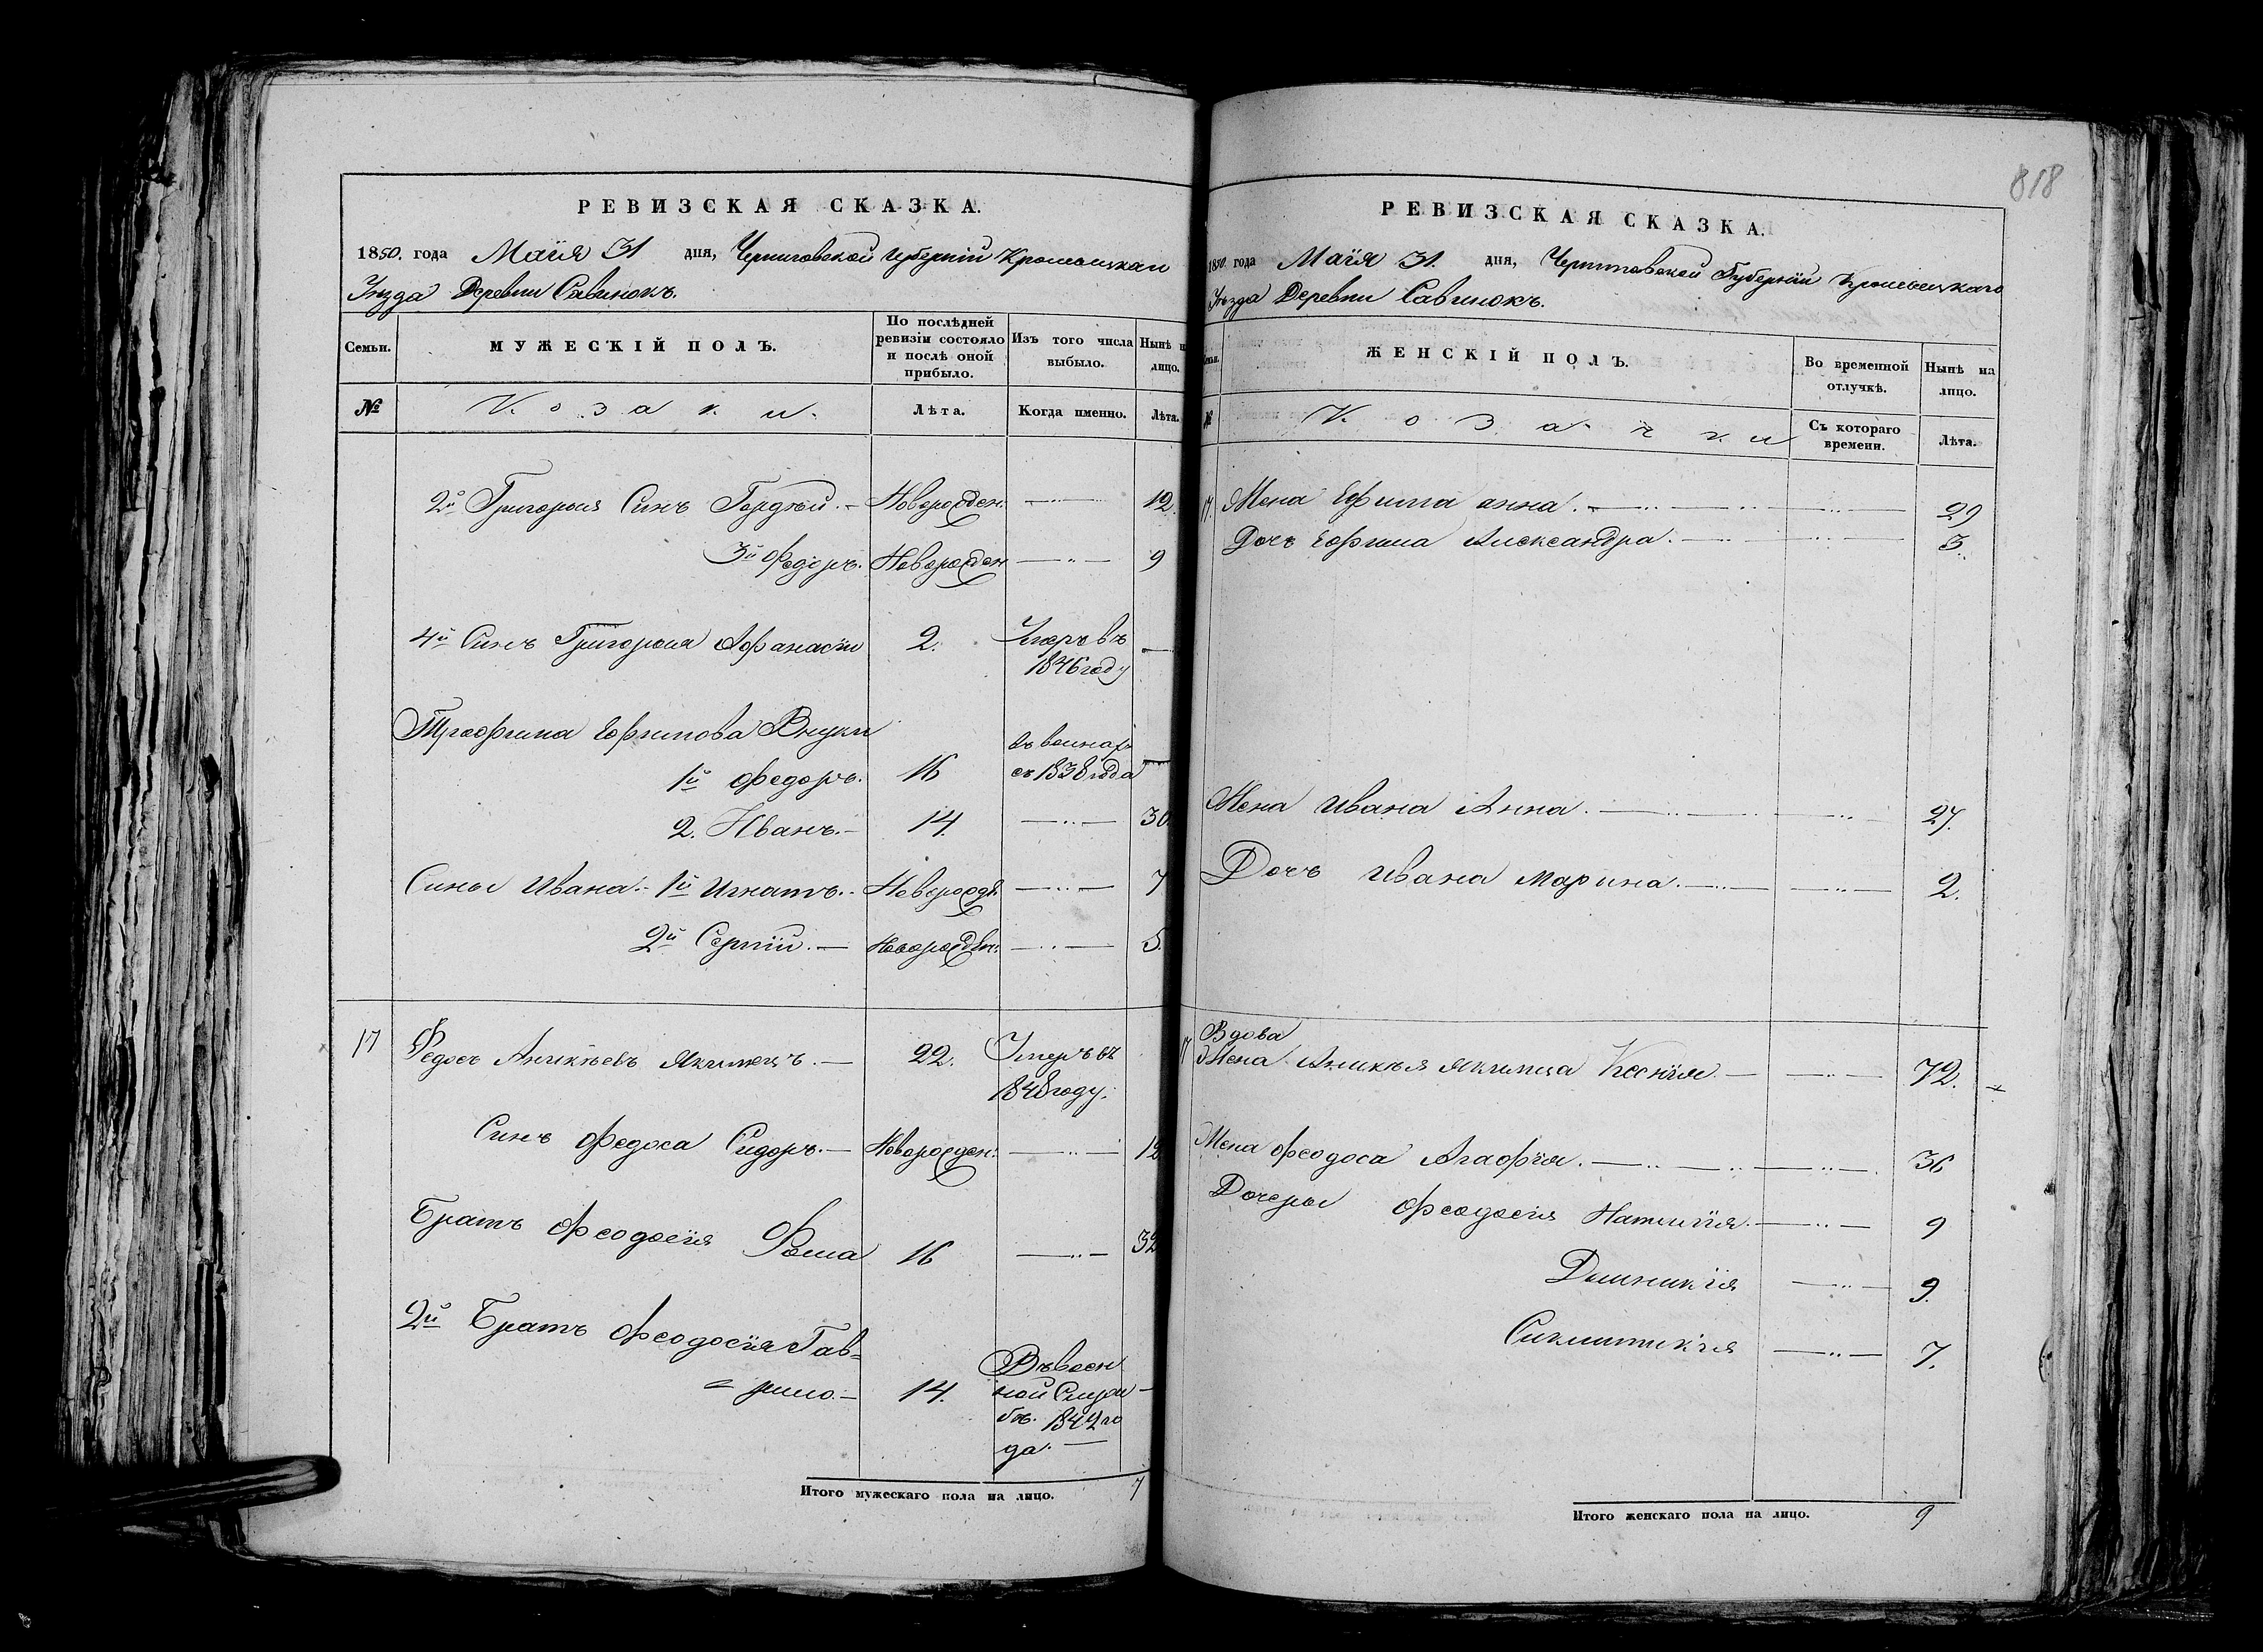 818
РЕВИЗСКАЯ СКАЗКА.
1850. года Маія 31 дня, Черниговской Губерніи Кролевецкаго
Уѣзда Деревни Савинокъ.
Семьи.
МУЖЕСКІЙ ПОЛЪ.
По послѣдней ревизіи состояло и послѣ оной прибыло.
Изъ того числа выбыло.
Нынѣ на лицо.
№
Козаки.
Лѣта.
Когда именно.
Лѣта.
2й Григорія Синъ Гордѣй. — Новорожден. — 12.
3й Федоръ. Новорожден — 9
4й Синъ Григорія Афанасій 2. Умеръ въ
1846 году —
Трофима Ефимова Внуки
1й Федоръ. 16 съ 1838 года —
2. Иванъ. — 14. — 30.
Сины Ивана. — 1й Игнатъ. — Новорожд. — 7
2й Сергій. — Новорожден. — 5.
17 Федосъ Аникѣевъ Якимецъ. — 22. Умеръ въ
1848 году.
Синъ Федоса Сидоръ. — Новорожден. — 12
Братъ Феодосія Фома 16 — 32
2й Братъ Феодосія Гав=
=рило. — 14. Въ воен
ной Служ —
бѣ. 1842 го
да. —
Итого мужескаго пола на лицо. 7
РЕВИЗСКАЯ СКАЗКА.
1850 года Маія 31. дня, Черниговской Губерніи Кролевецкаго
Уѣзда Деревни Савинокъ.
Семьи.
ЖЕНСКІЙ ПОЛЪ.
Во временной отлучкѣ.
Нынѣ на лицо.
№
Козачки
Съ котораго времени.
Лѣта.
17. Жена Ефима анна. — 29
Дочь Ефима Александра. — 3.
Жена Ивана Анна. — 27.
Дочъ Ивана Марина. — 2.
Вдова
17 Жена Аникѣя Якимца Ксенія — 72.
Жена Феодоса Агафія. — 36
Дочеры Феодосія Наталія. — 9
Домникія — 9.
Сиклитикія — 7.
Итого женскаго пола на лицо. 9